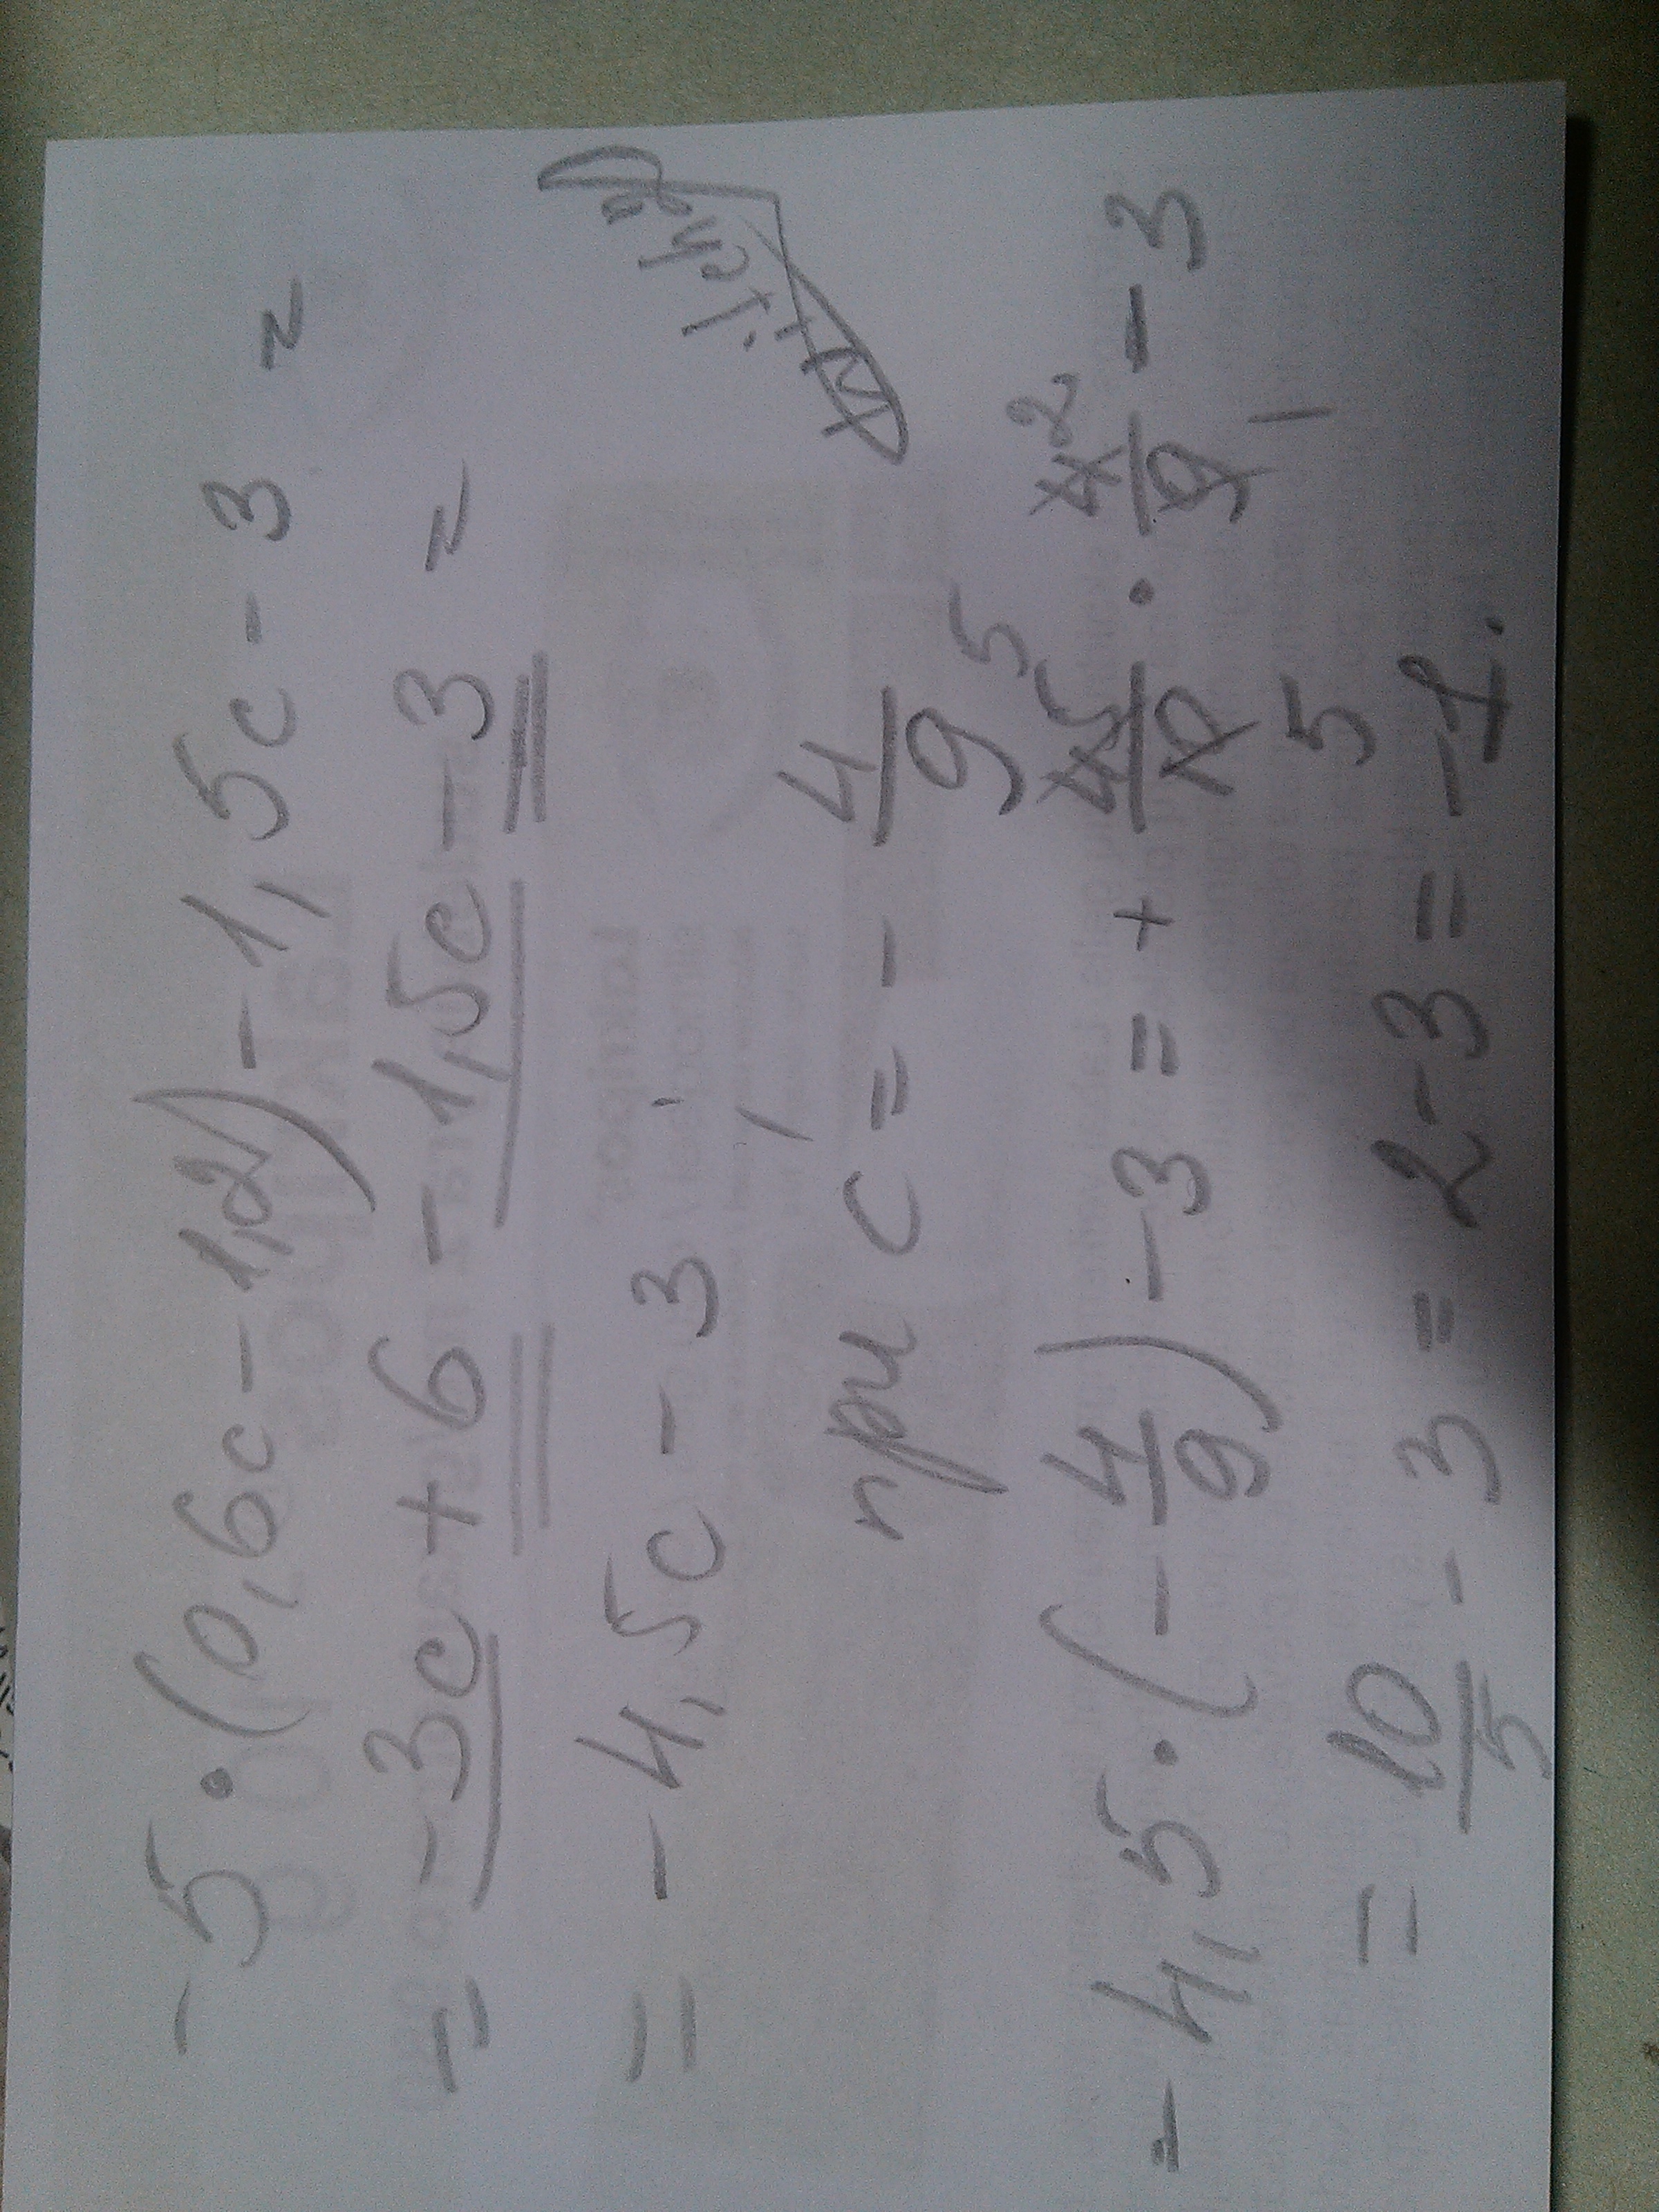 -5·(0,6c-1,2)-1,5c-3 =
= -3c+6-1,5c-3 =
= -4,5c-3
при c = -4/9
-4,5·(-4/9)-3 = + 45/10 · 4/9 - 3
5 2 5 1
= 10/5 - 3 = 2-3 = -1.